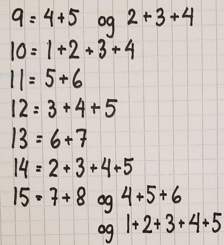 9 = 4+5 og 2+3+4
10 = 1+2+3+4
11 = 5+6
12 = 3+4+5
13 = 6+7
14 = 2+3+4+5
15 = 7+8 og 4+5+6
og 1+2+3+4+5